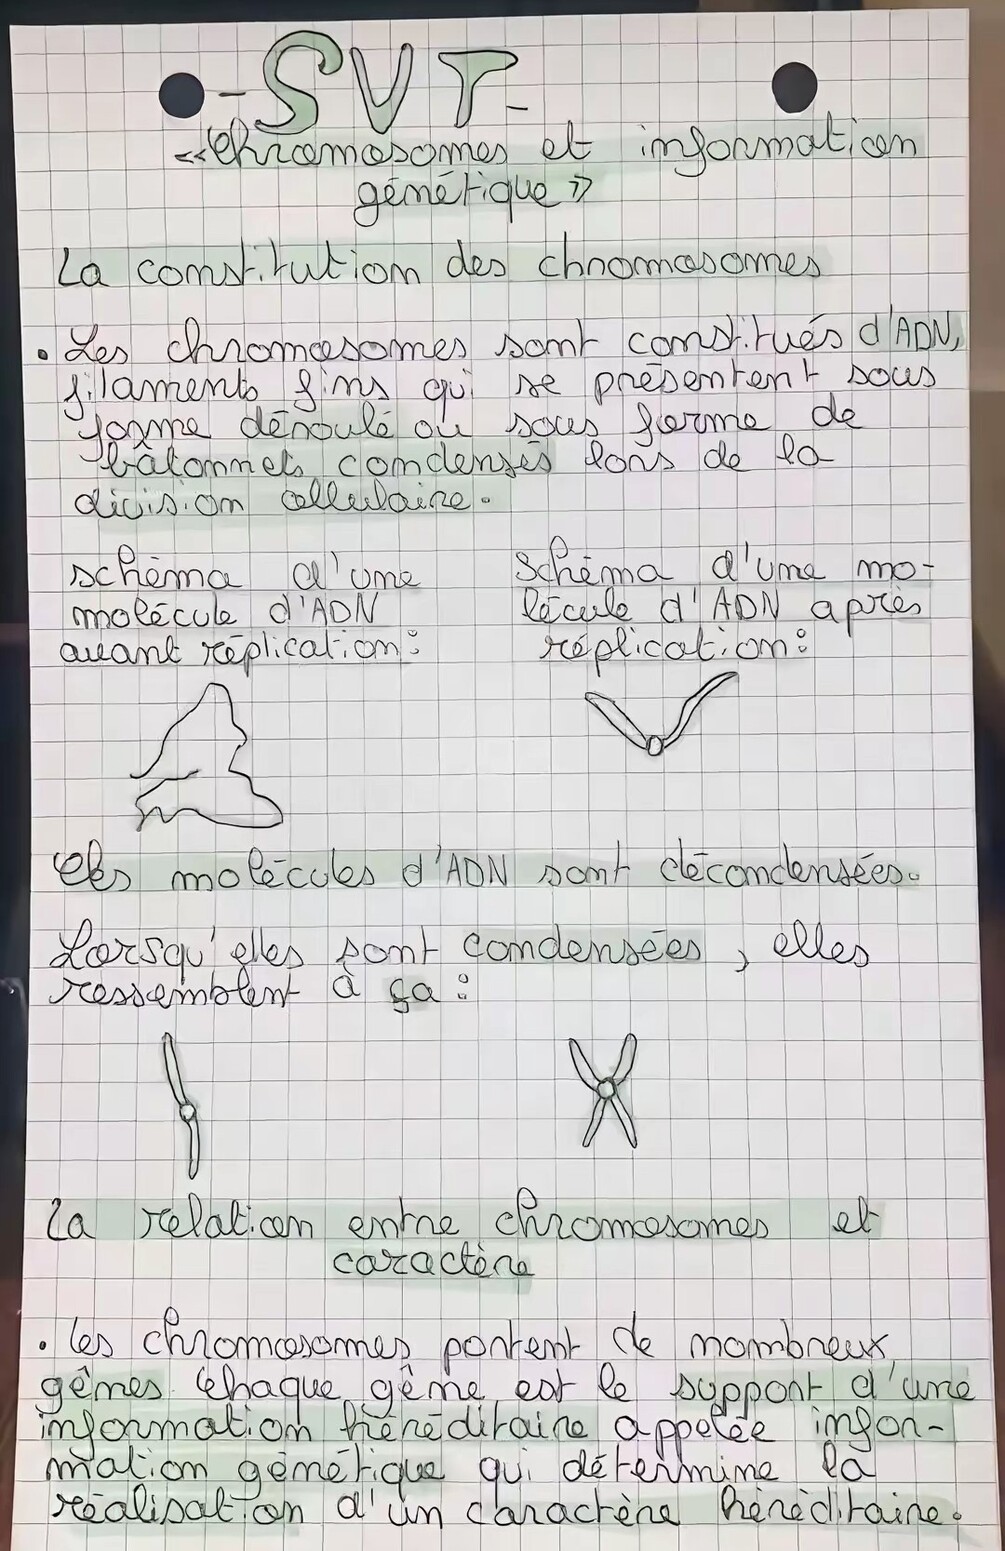 - SVT -
« Chromosomes et information
génétique »
La constitution des chromosomes
• Les chromosomes sont constitués d'ADN,
filaments fins qui se présentent sous
forme déroulé ou sous forme de
bâtonnets condensés lors de la
division cellulaire.
schéma d'une
molécule d'ADN
avant réplication :
Schéma d'une mo-
lécule d'ADN après
réplication :
Ces molécules d'ADN sont décondensées.
Lorsqu'elles sont condensées, elles
ressemblent à ça :
La relation entre chromosomes et
caractère
• Les chromosomes portent de nombreux
gênes. Chaque gêne est le support d'une
information héréditaire appelée infor-
mation génétique qui détermine la
réalisation d'un caractère héréditaire.